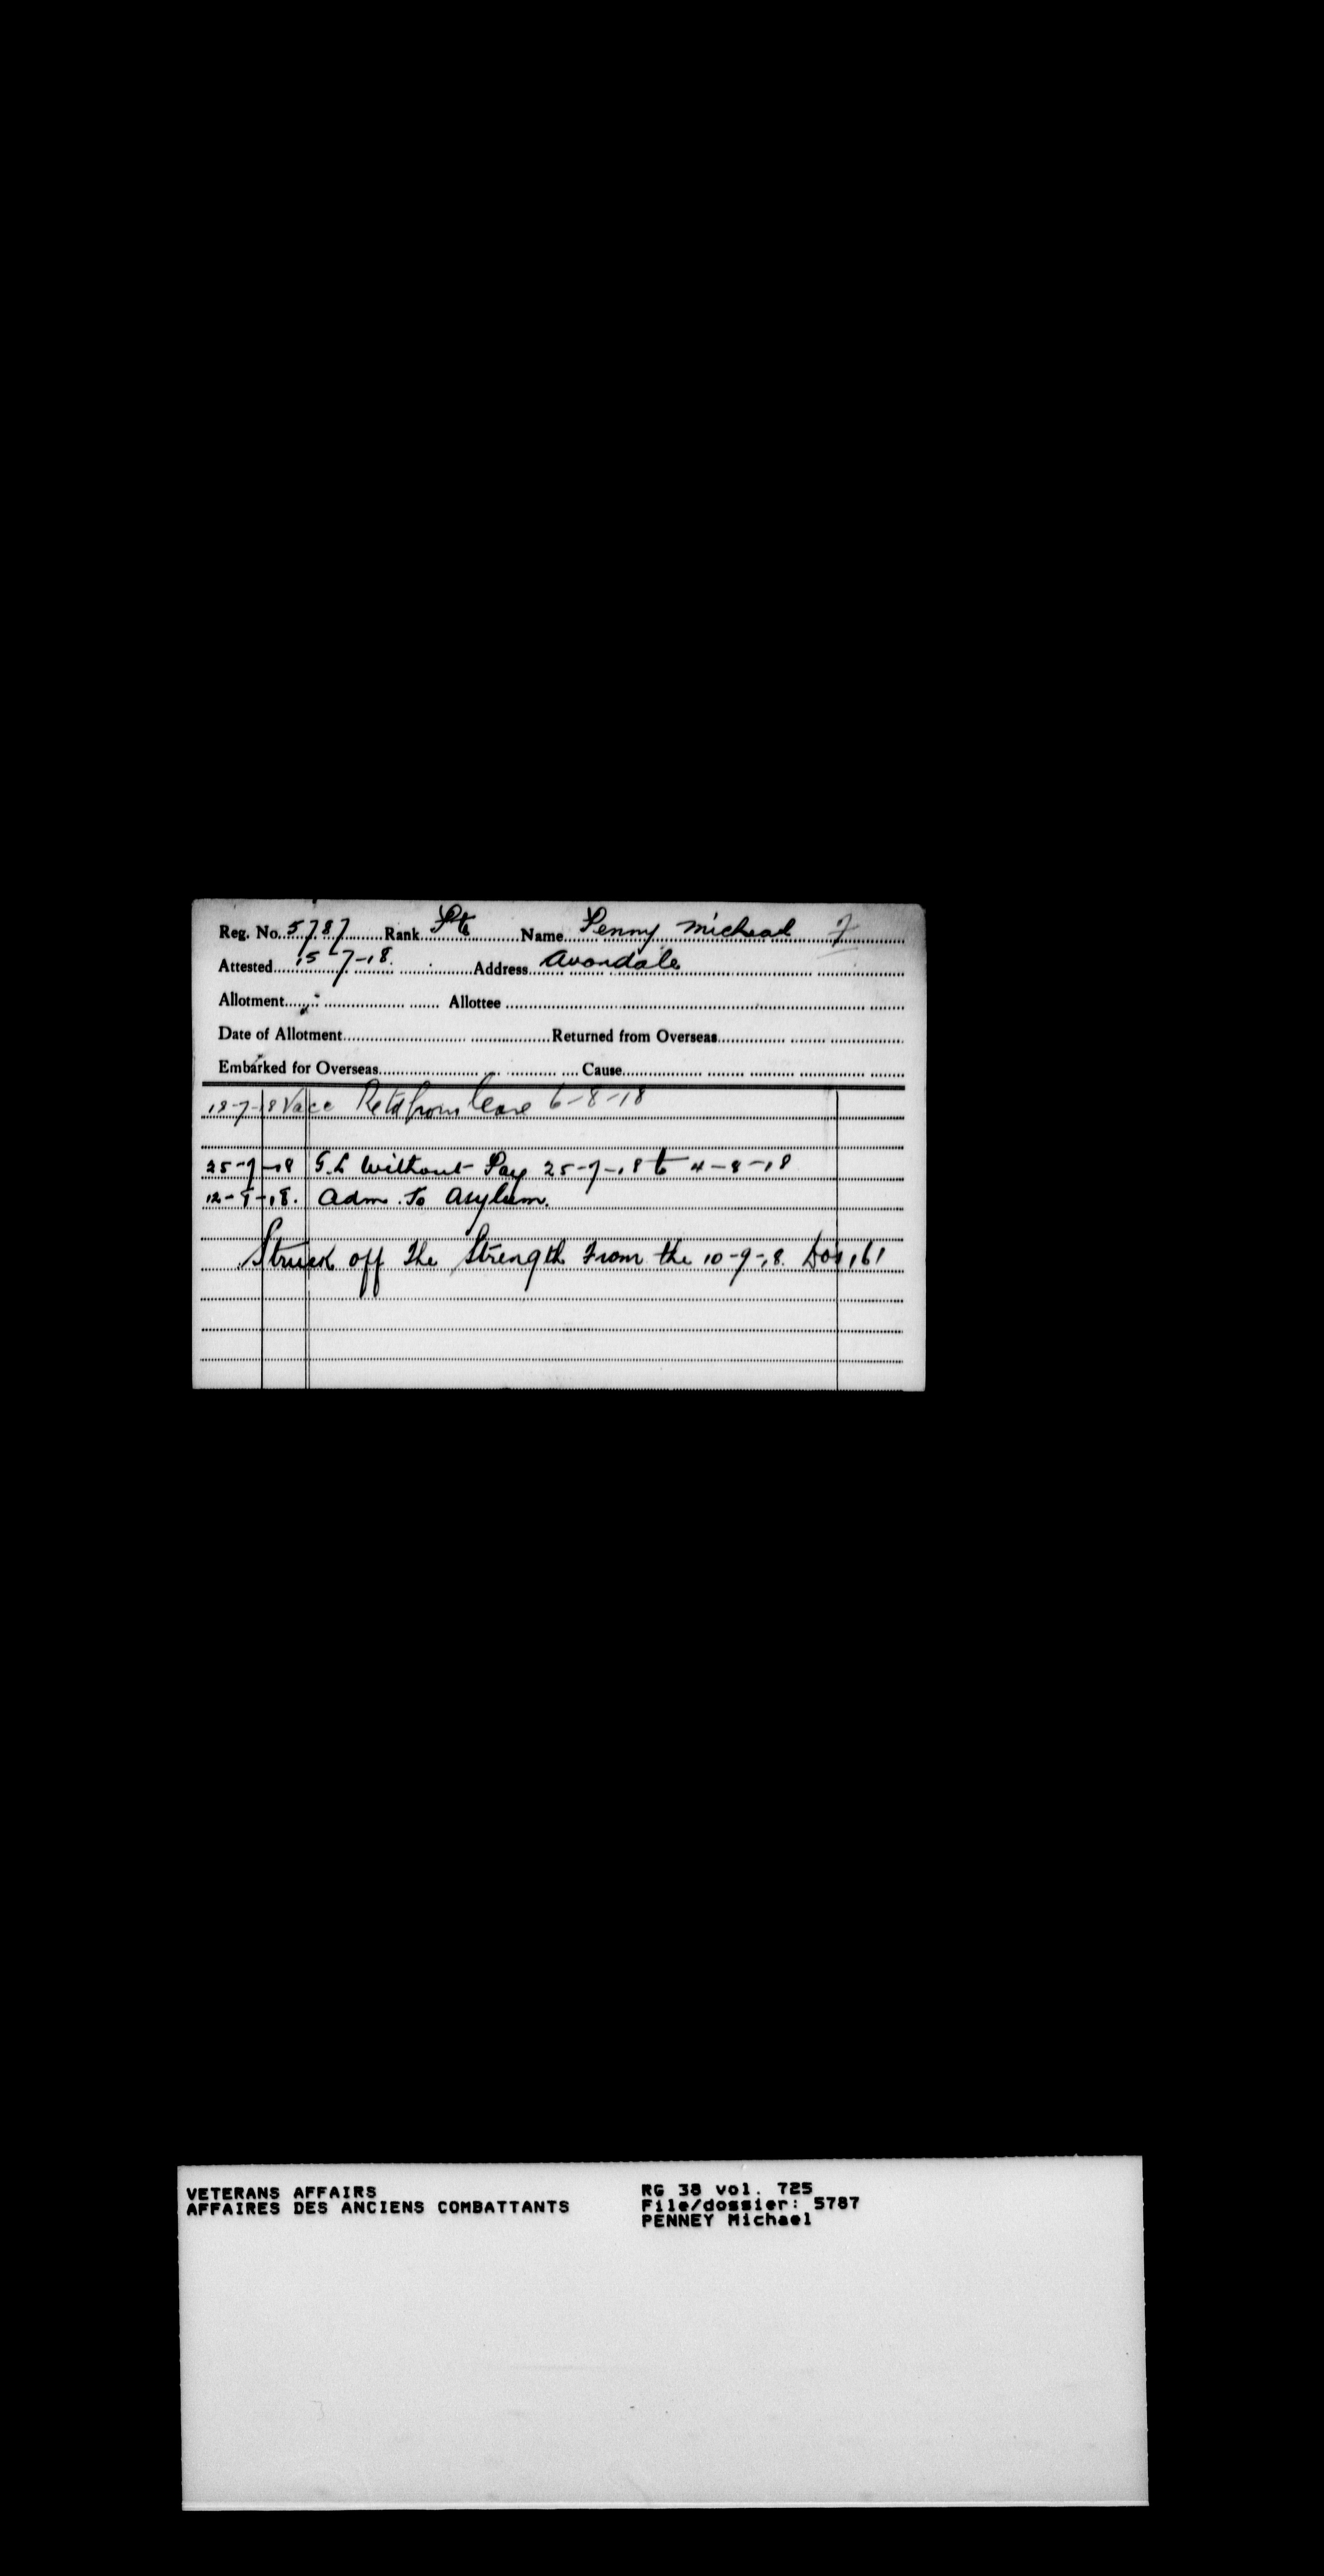 Reg. No. 5787 Rank Pte Name Penny Micheal F
Attested 15-7-18 Address Avondale
Allotment Allottee
Date of Allotment Returned from Overseas
Embarked for Overseas Cause
18-7-18 Vacc Retd from leave 6-8-18
25-7-18 G.L Without Pay 25-7-18 to 4-8-18
12-8-18. Adm. To Asylum.
Struck off The Strength From the 10-9-18. 161
VETERANS AFFAIRS RG 38 vol. 725
AFFAIRES DES ANCIENS COMBATTANTS File/dossier: 5787
PENNEY Michael